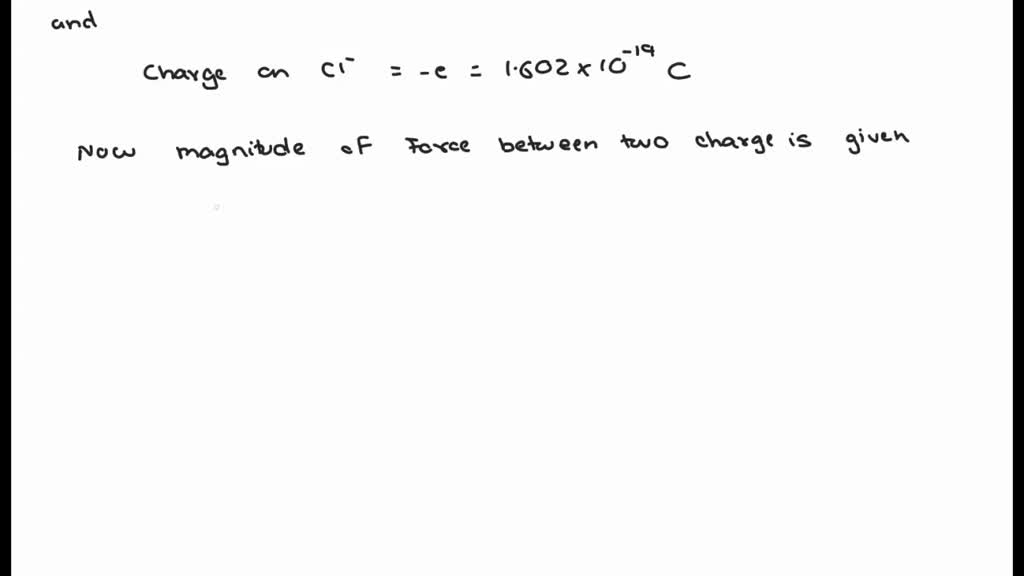 and
Charge on Cl⁻ = -e = 1.602 x 10⁻¹⁹ C
Now magnitude of Force between two charge is given